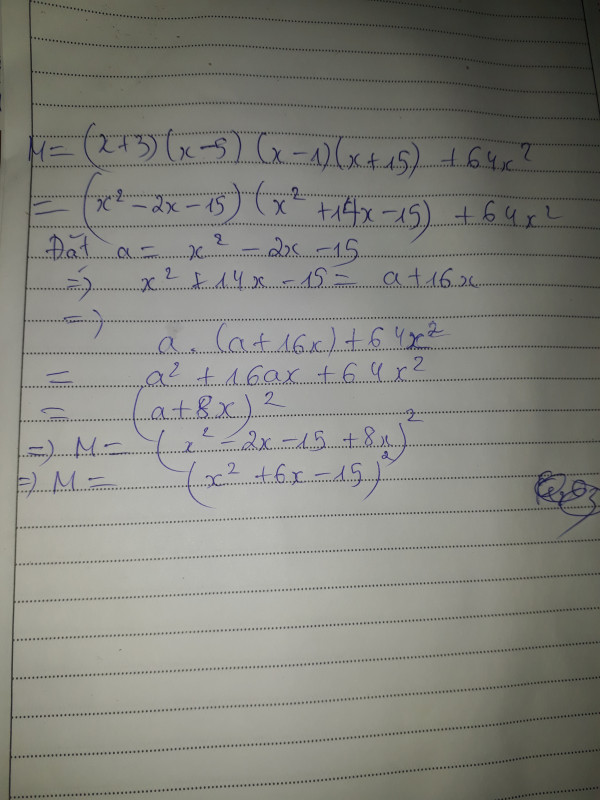 M = (x+3)(x-5)(x-1)(x+15) + 64x²
= (x²-2x-15)(x²+14x-15) + 64x²
Đặt a = x² - 2x - 15
=> x² + 14x - 15 = a + 16x
=>
a.(a+16x)+64x²
= a² + 16ax + 64x²
= (a+8x)²
=> M = (x²-2x-15+8x)²
=> M = (x²+6x-15)²